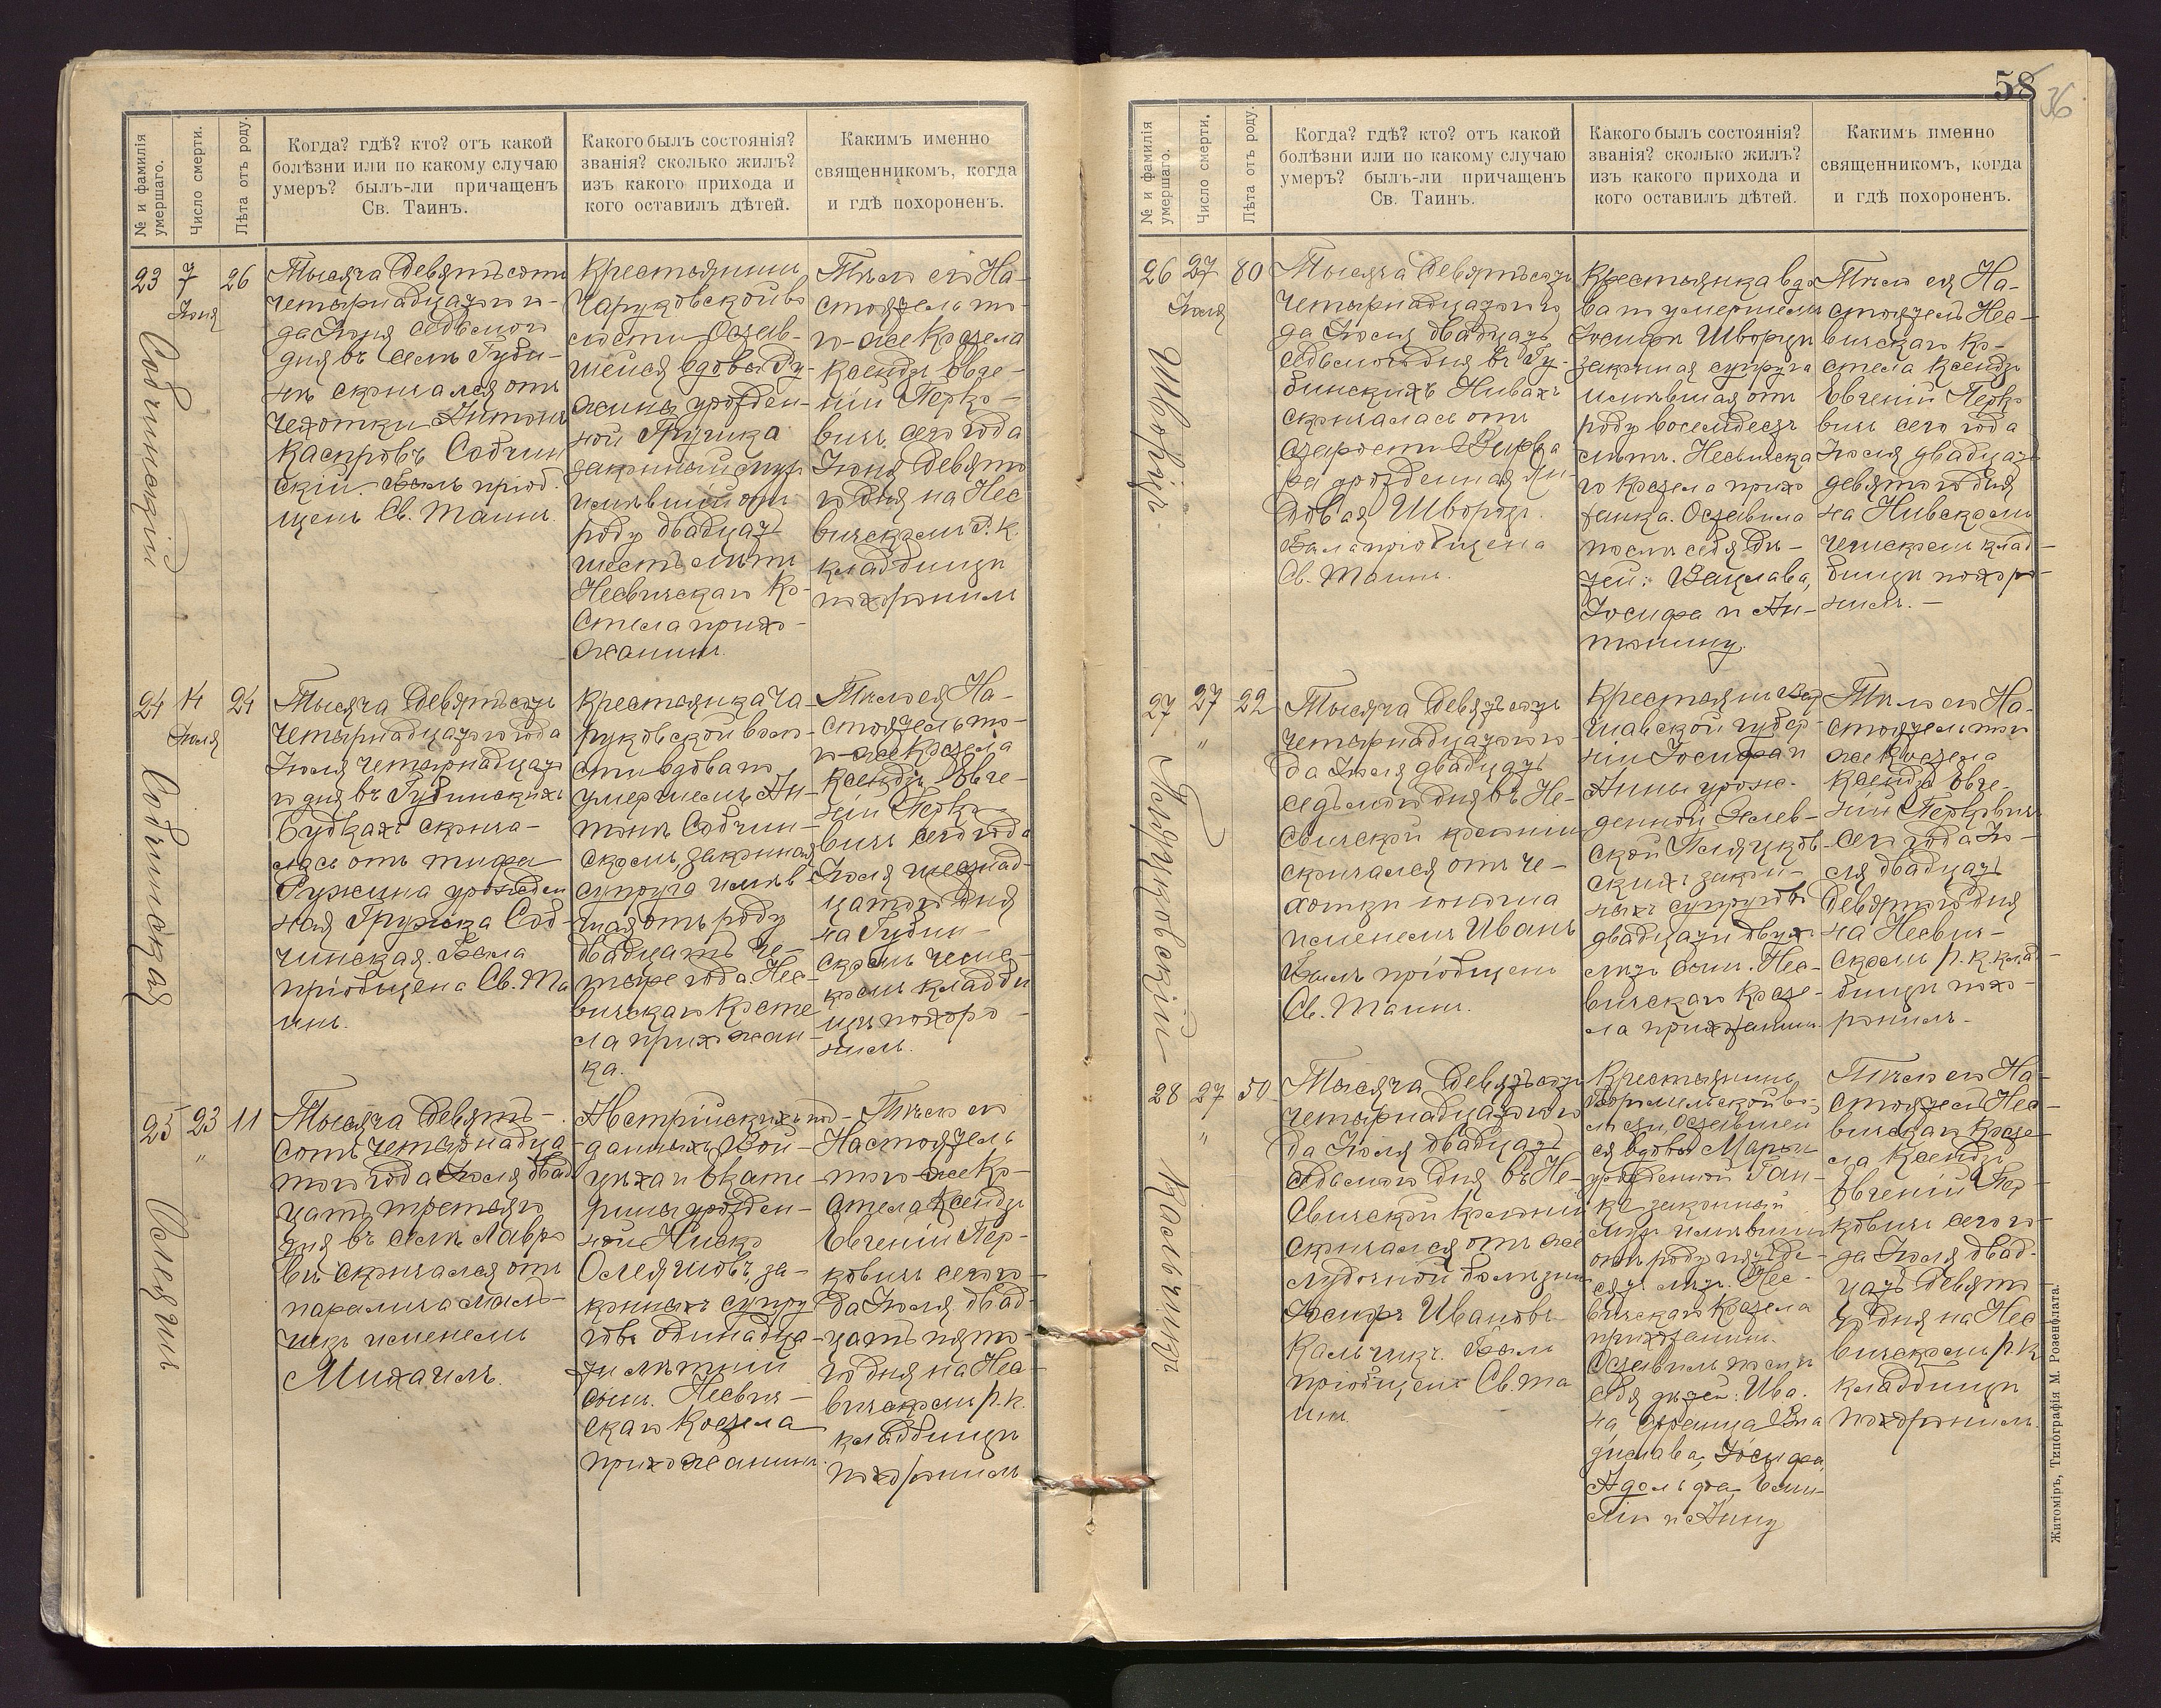 58
36
№ и фамилія умершаго.
Число смерти.
Лѣта отъ роду.
Когда? гдѣ? кто? отъ какой
болѣзни или по какому случаю
умеръ? былъ-ли причащенъ
Св. Таинъ.
Какого былъ состоянія?
званія? сколько жилъ?
изъ какого прихода и
кого оставилъ дѣтей.
Какимъ именно
священникомъ, когда
и гдѣ похороненъ.
23
7 Іюня
26
Собчинскій
Тысяча девятьсотъ
четырнадцатого го-
да Іюня седьмого
дня въ селѣ Губи-
нѣ скончался отъ
чехотки Антонъ
Каспровъ Собчин
скій. Былъ пріоб.
щенъ Св. Таинъ.
Крестьянинъ
Чаруковской во
лости Остав-
шейся вдовы Ру-
жины урожден-
ной Гружка
законный мужъ
имѣвшій отъ
роду двадцать
шесть лѣтъ
Несвичскаго Ко-
стела прихо-
жанинъ.
Тѣло его На-
стоятель то-
го-же Костела
Ксендзъ Евге-
ній Перко-
вичъ сего года
Іюня девято
го дня на Нес
вичскомъ р. к.
кладбищѣ
похоронилъ
24
14 Іюля
24
Собчинская
Тысяча девятьсотъ
четырнадцатого года
Іюля четырнадцат
го дня въ Губинскихъ
Будкахъ сконча-
лась отъ тифа
Ружина урожден
ная Гружка Соб-
чинская. Была
пріобщена Св. Та
инъ.
Крестьянка Ча
руковской воло-
сти вдова по
умершемъ Ан-
тонѣ Собчин-
скомъ, законная
супруга имѣв-
шая отъ роду
двадцать че-
тыре года. Нес-
вичскаго Косте
ла прихожан-
ка.
Тѣло ея На-
стоятель то-
го-же Костела
Ксендзъ Евге-
ній Перко-
вичъ сего года
Іюля шестнад-
цатого дня
на Губин-
скомъ чешс-
комъ кладби
щѣ похоро-
нилъ.
25
23 "
11
Олеяшъ
Тысяча девять-
сотъ четырнадца
того года Іюля двад
цать третьяго
дня въ селѣ Лавро
вѣ скончался отъ
паралича маль-
чикъ именемъ
Михаилъ.
Австрійскихъ под-
данныхъ Вой-
цѣха и Екате-
рины урожден-
ной Ниско
Олеяшовъ, за-
конныхъ супру
говъ одинадца-
ти лѣтній
сынъ. Несвич-
скаго Костела
прихожанинъ.
Тѣло его
Настоятель
того-же Ко-
стела Ксендзъ
Евгеній Пер-
ковичъ сего го-
да Іюля двад-
цать пято-
го дня на Нес-
вичскомъ р. к.
кладбищѣ
похоронилъ
26
27 Іюля
80
Шворцъ
Тысяча девятьсотъ
четырнадцатого го
да Іюля двадцать
седьмого дня въ Гу-
бинскихъ Нивахъ
скончалась отъ
старости Варва
ра урожденная Ли
довая Шворцъ.
Была пріобщена
Св. Таинъ.
Крестьянка вдо
ва по умершемъ
Іосифѣ Шворцѣ
законная супруга
имѣвшая отъ
роду восемдесятъ
лѣтъ. Несвичска
го Костела прихо
жанка. Оставила
послѣ себя дѣ-
тей: Вацлава,
Іосифа и Ан-
тонину.
Тѣло ея На-
стоятель Нес-
вичскаго Ко-
стела Ксендзъ
Евгеній Перко
вичъ сего года
Іюля двадцать
девятого дня
на Нивскомъ
чешскомъ клад-
бищѣ похоро-
нилъ.-
27
27 "
22
Тысяча девятьсотъ
четырнадцатого го-
да Іюля двадцать
седьмого дня въ Не-
свичской колоніи
скончался отъ че-
хотки юноша
именемъ Иванъ
Былъ пріобщенъ
Св. Таинъ.
Крестьянъ Вар
шавской губер-
ніи Іосифа и
Анны урож-
денной
законныхъ супруговъ
двадцати двух
лѣтъ сынъ. Нес-
вичскаго Косте-
ла прихожанинъ.
Тѣло его На-
стоятель того
же Костела
Ксендзъ Евге-
ній Перковичъ
сего года Ію-
ля двадцать
девятого дня
на Несвич-
скомъ р. к. клад-
бищѣ похо-
ронилъ.
28
27 "
50
Кальчикъ
Тысяча девятьсотъ
четырнадцатого го
да Іюля двадцать
седьмого дня въ Не-
свичской колоніи
скончался отъ же
лудочной болѣзни
Іосифъ Ивановъ
Кальчикъ. Былъ
пріобщенъ Св. Та
инъ.
Крестьянинъ
во-
лости, Оставшей
ся вдовы Маріи
урожденной
законный
мужъ имѣвшій
отъ роду пятьде-
сятъ лѣтъ. Нес-
вичскаго Костела
прихожанинъ.
Оставилъ послѣ
себя дѣтей: Ива-
на Франца Вла
дислава, Іосифа,
Адольфа, Еми-
лію и Анну
Тѣло его На-
стоятель Нес-
вичскаго Косте-
ла Ксендзъ
Евгеній Пер-
ковичъ сего го-
да Іюля двад-
цать девято
го дня на Нес
вичскомъ р. к.
кладбищѣ
похоронилъ.
Житоміръ, Типографія М. Розенблата.